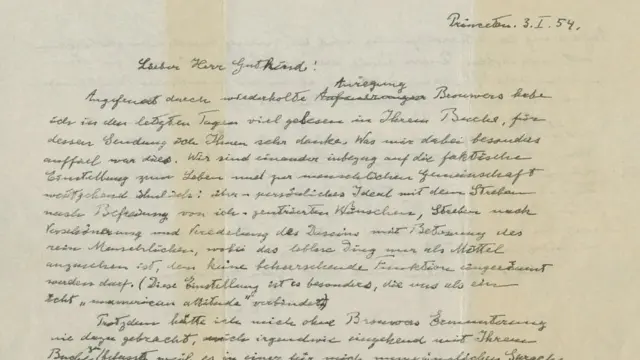 Princeton. 3. I. 54.
Lieber Herr Gutkind!
Anregung
Angefeuert durch wiederholte Brouwers habe
ich in den letzten Tagen viel gelesen in Ihrem Buche, für
dessen Sendung ich Ihnen sehr danke. Was mir dabei besonders
auffiel war dies. Wir sind einander inbezug auf die faktische
Einstellung zum Leben und zur menschlichen Gemeinschaft
weitgehend ähnlich: über-persönliches Ideal mit dem Streben
nach Befreiung von ich-zentrierten Wünschen, Streben nach
Verschönerung und Veredelung des Daseins mit Betonung des
rein Menschlichen, wobei das leblose Ding nur als Mittel
anzusehen ist, dem keine beherrschende Funktion eingeräumt
werden darf. (Diese Einstellung ist es besonders, die uns als ein
echt „unamerican attitude" verbindet)
Trotzdem hätte ich mich ohne Brouwers Ermunterung
nie dazu gebracht, mich irgendwie eingehend mit Ihrem
Buche weil es in einer für mich Sprache